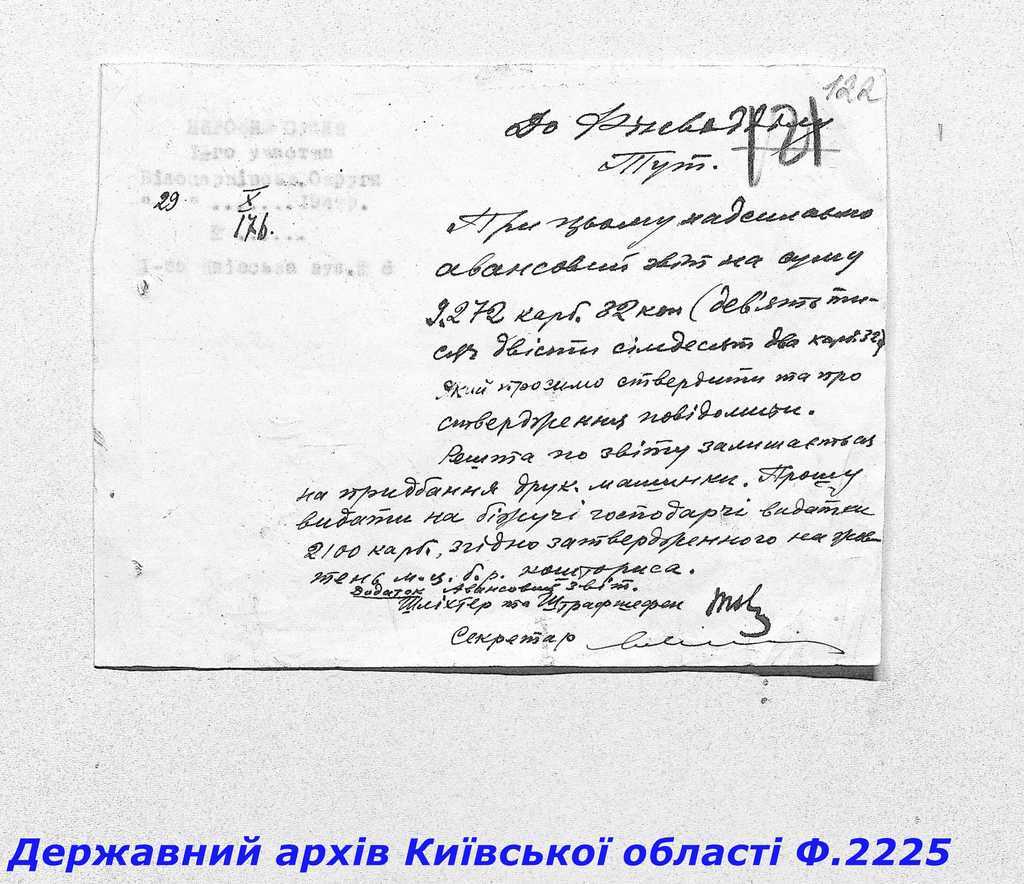 122
121
До Фінвідділу
Тут.
29 X
176.
При цьому надсилаємо
авансовий звіт на суму
9.272 карб. 32 коп (дев'ять ти-
сяч двісти сімдесят два карб. 32)
який просимо ствердити та про
ствердження повідомити.
Решта по звіту залишається
на придбання друк. машинки. Прошу
видати на біжучі господарчі видатки
2100 карб., згідно затвердженного на жов-
тень м-ц. б.р. кошториса.
Додаток Авансовий звіт.
Шліхтер та
Секретар
Державний архів Київської області Ф.2225